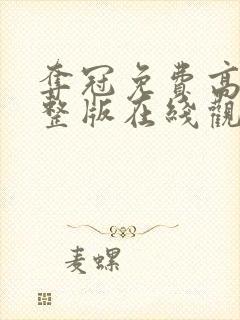 夺冠免费高
整版在线觀
麦螺